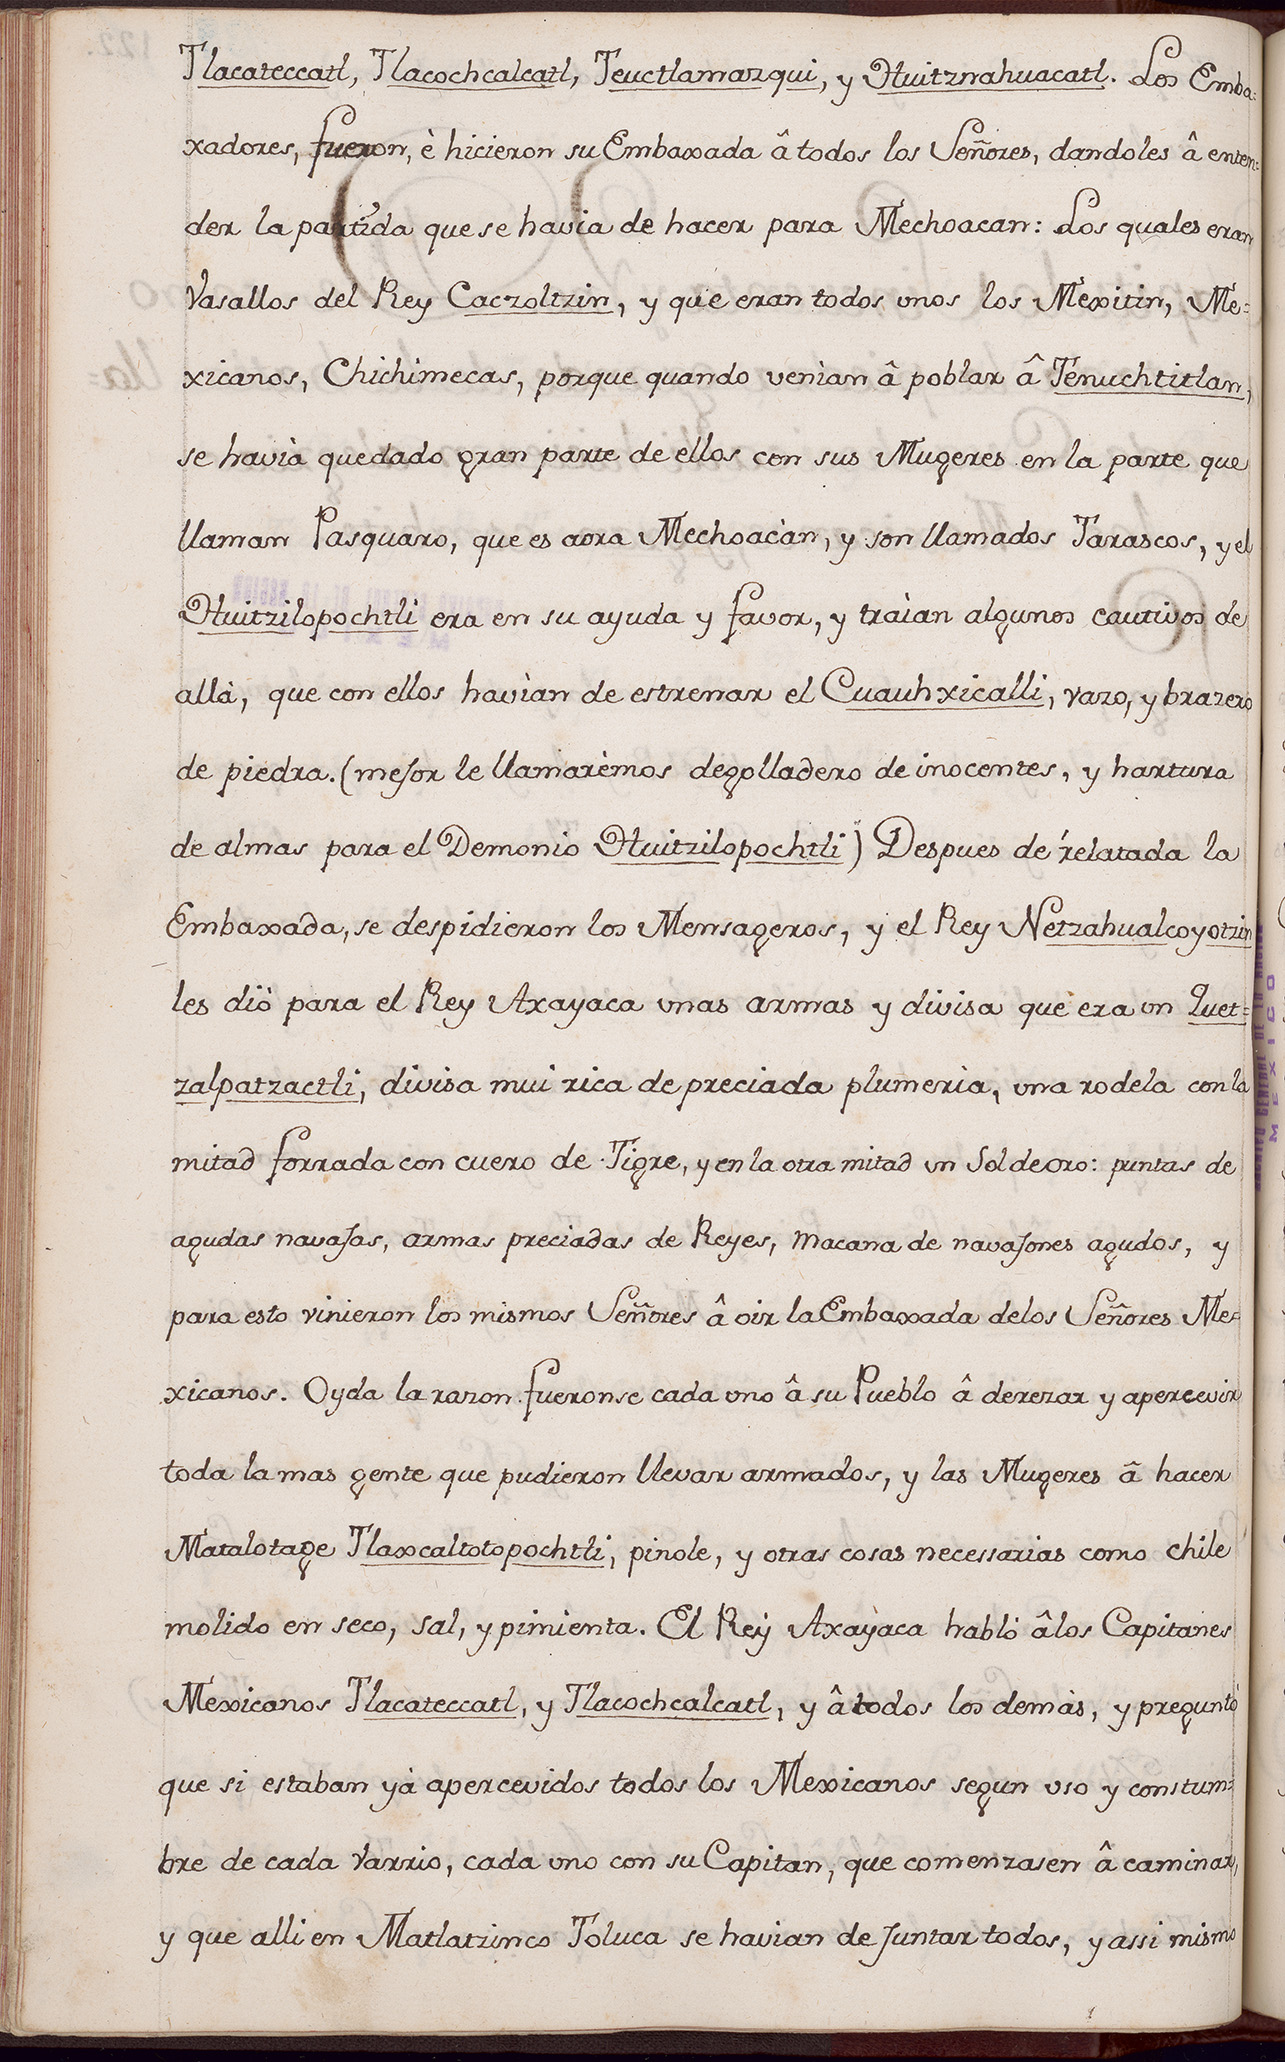 Tlacateccatl, Tlacochcalcatl, Teuctlamazqui, y Huitznahuacatl. Los Emba=
xadores, fueron, è hicieron su Embaxada â todos los Señores, dandoles â enten=
der la partida que se havia de hacer para Mechoacan: Los quales eran
Vasallos del Rey Caczoltzin, y que eran todos vnos los Mexitin, Me=
xicanos, Chichimecas, porque quando venìan â poblar â Tenuchtitlan,
se havià quedado gran parte de ellos con sus Mugeres en la parte que
llaman Pasquaro, que es aora Mechoacàn, y son llamados Tarascos, y el
Huitzilopochtli era en su ayuda y favor, y traìan algunos cautivos de
allà, que con ellos havìan de estrenar el Cuauhxicalli, vazo, y brazero
de piedra. (mejor le llamarèmos degolladero de inocentes, y hartura
de almas para el Demonio Huitzilopochtli) Despues de rèlatada la
Embaxada, se despidieron los Mensageros, y el Rey Netzahualcoyotzin
les diò para el Rey Axayaca vnas armas y divisa que era vn Quet=
zalpatzactli, divisa mui rica de preciada plumerìa, vna rodela con la
mitad forrada con cuero de Tigre, y en la otra mitad vn Sol de oro: puntas de
agudas navajas, armas preciadas de Reyes, Macana de navajones agudos, y
para esto vinieron los mismos Señores â oir la Embaxada delos Señores Me=
xicanos. Oyda la razon fueronse cada vno â su Pueblo â derezar y apercevir
toda la mas gente que pudieron llevar armados, y las Mugeres â hacer
Matalotage Tlaxcaltotopochtli, pinole, y otras cosas necessarias como chile
molido en seco, sal, y pimienta. El Rey Axayaca hablò âlos Capitanes
Mexicanos Tlacateccatl, y Tlacochcalcatl, y â todos los demàs, y preguntò
que si estaban yà apercevidos todos los Mexicanos segun vso y constum=
bre de cada Varrio, cada vno con su Capitan, que comenzasen â caminar,
y que alli en Matlatzinco Toluca se havian de Juntar todos, y assi mismo